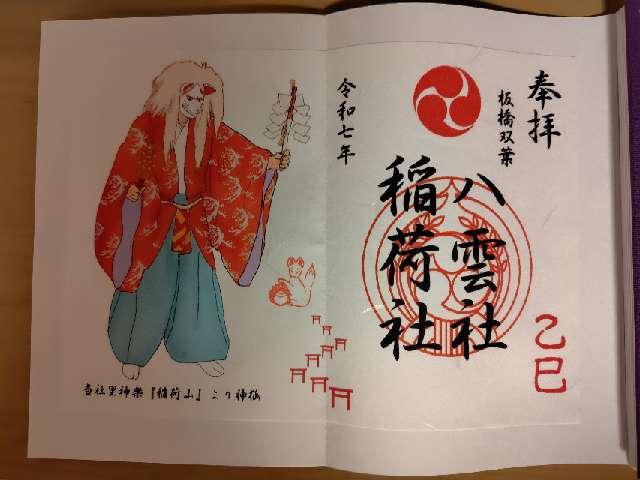 奉拝
板橋双葉
八雲社
稲荷社
乙巳
令和七年
当社里神楽『稲荷山』より神狐